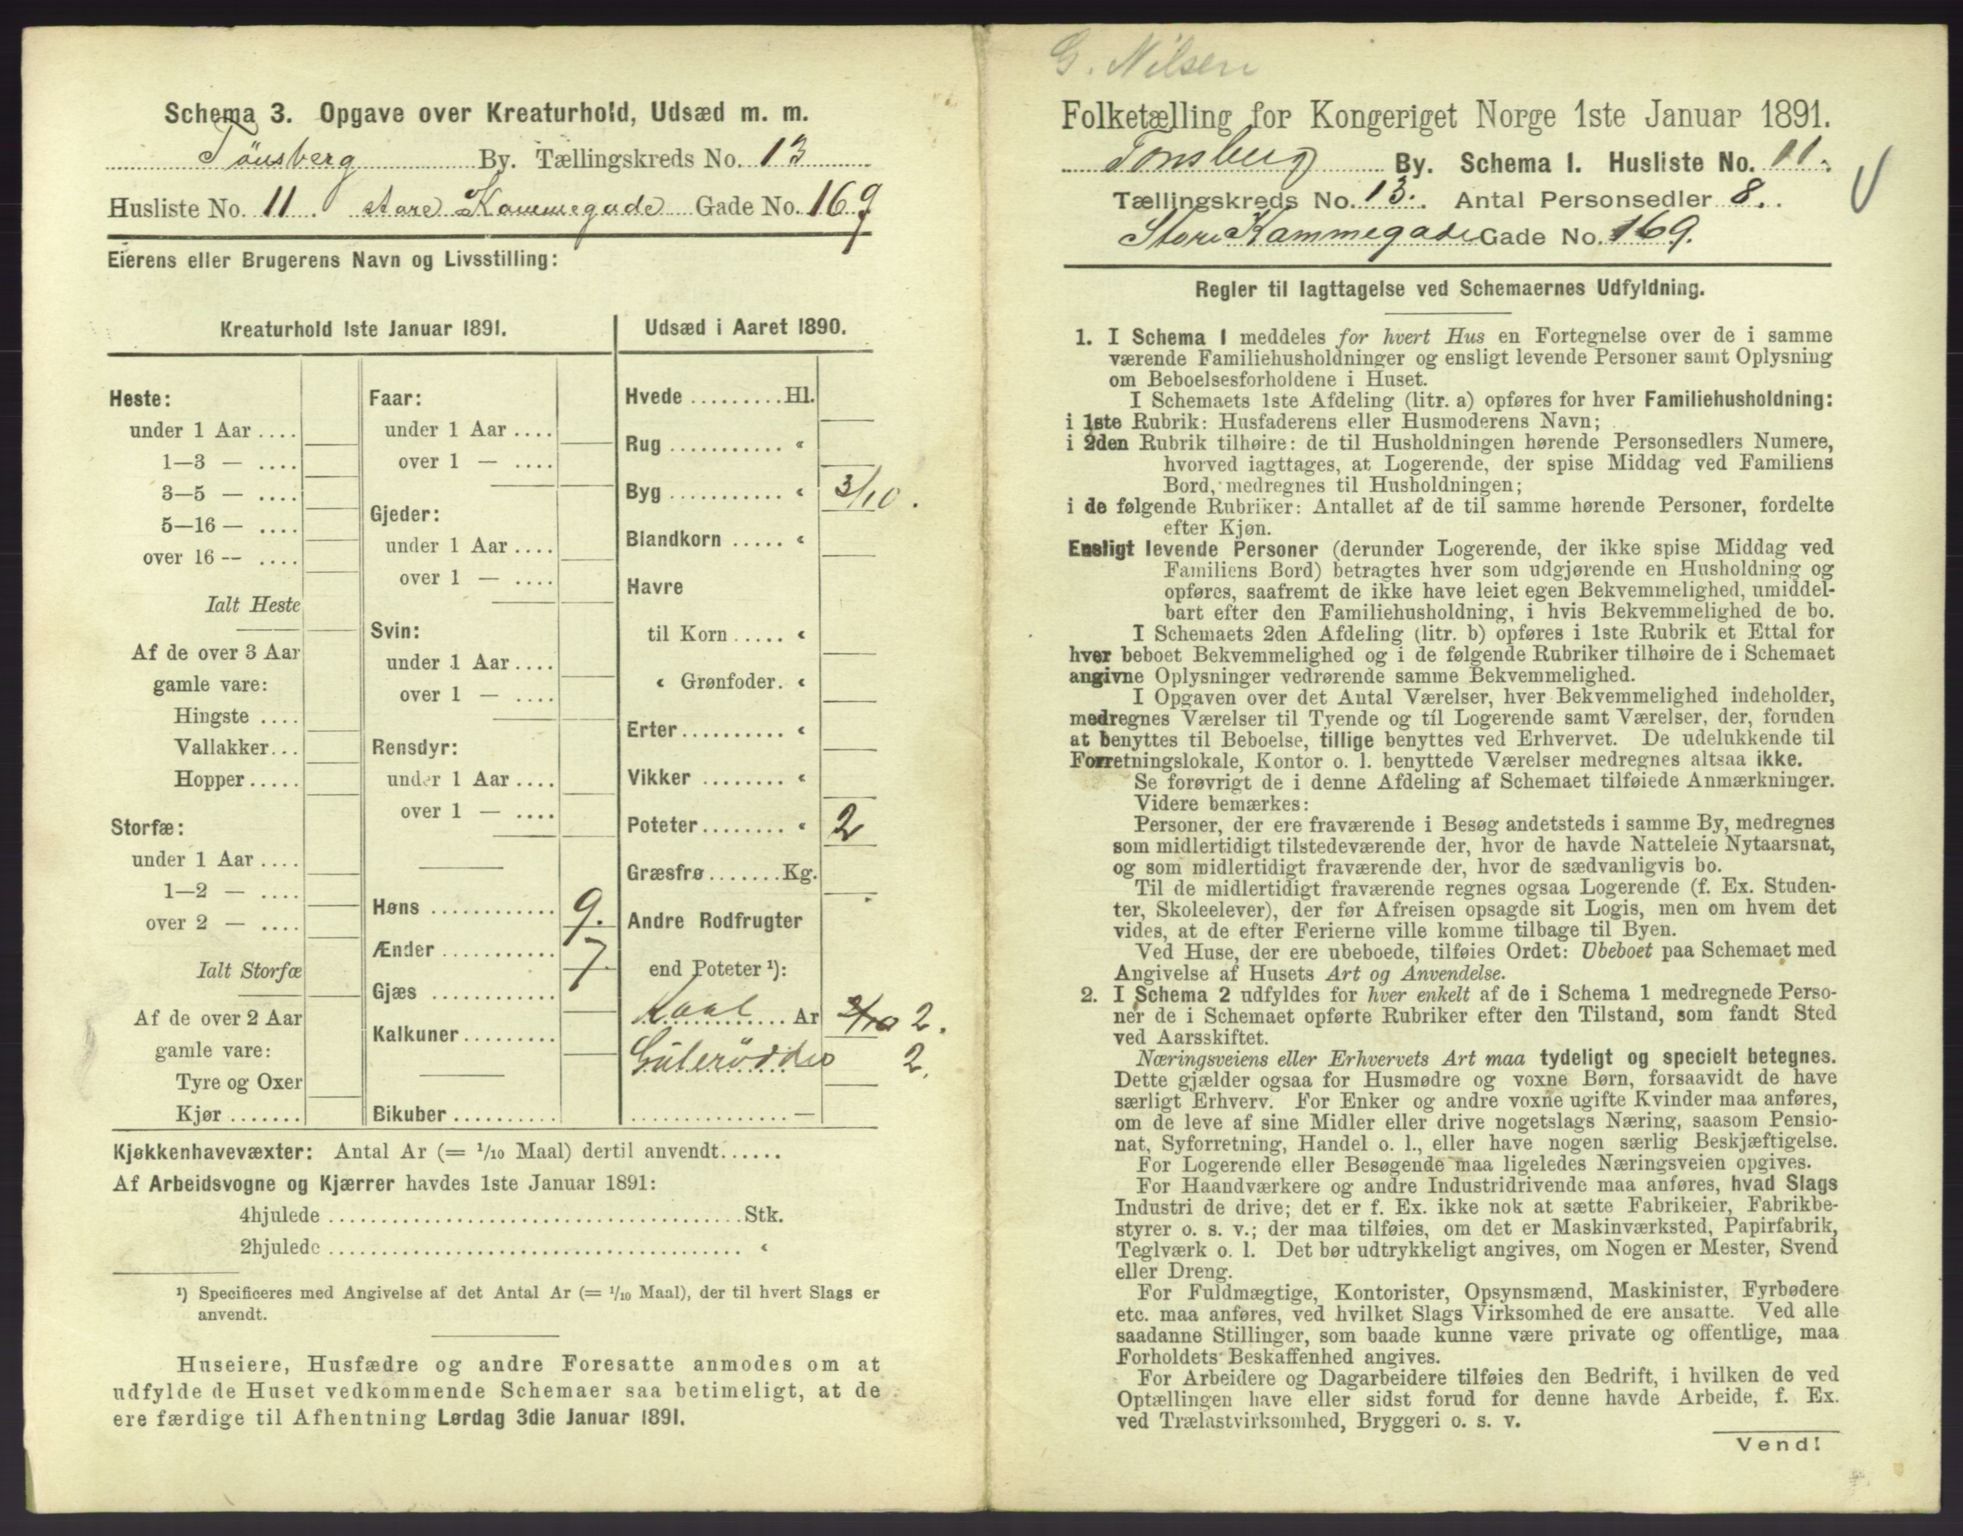 Schema 3. Opgave over Kreaturhold, Udsæd m. m.
Tönsberg By. Tællingskreds No. 13
Husliste No. 11. store Kammegade Gade No. 169
Eierens eller Brugerens Navn og Livsstilling:
Kreaturhold 1ste Januar 1891.
Heste:
under 1 Aar ....
1—3 — ....
3—5 — ....
5—16 — ....
over 16 -- ....
Ialt Heste
Af de over 3 Aar
gamle vare:
Hingste ....
Vallakker...
Hopper.....
Storfæ:
under 1 Aar ....
1—2 — ....
over 2 — ....
Ialt Storfæ
Af de over 2 Aar
gamle vare:
Tyre og Oxer
Kjør ........
Faar:
under 1 Aar ....
over 1 — ....
Gjeder:
under 1 Aar ....
over 1 — ....
Svin:
under 1 Aar ....
over 1 — ....
Rensdyr:
under 1 Aar ....
over 1 — ....
Høns ............ 9.
Ænder ........... 7
Gjæs ............
Kalkuner.........
Bikuber..........
Udsæd i Aaret 1890.
Hvede .........Hl.
Rug ........... «
Byg ........... « 3/10.
Blandkorn ..... «
Havre
til Korn ..... «
« Grønfoder. «
Erter.......... «
Vikker ........ «
Poteter........ « 2
Græsfrø.......Kg.
Andre Rodfrugter
end Poteter ¹):
Kaal Ar 2/10 2.
Gulerödder 2.
............... —
Kjøkkenhavevæxter: Antal Ar (= 1/10 Maal) dertil anvendt......
Af Arbeidsvogne og Kjærrer havdes 1ste Januar 1891:
4hjulede ........................................Stk.
2hjulede ........................................ «
¹) Specificeres med Angivelse af det Antal Ar (= 1/10 Maal), der til hvert Slags er
anvendt.
Huseiere, Husfædre og andre Foresatte anmodes om at
udfylde de Huset vedkommende Schemaer saa betimeligt, at de
ere færdige til Afhentning Lørdag 3die Januar 1891.
G. Nilsen
Folketælling for Kongeriget Norge 1ste Januar 1891.
Tønsberg By. Schema I. Husliste No. 11.
Tællingskreds No. 13. Antal Personsedler 8.
Store Kammegade Gade No. 169.
Regler til Iagttagelse ved Schemaernes Udfyldning.
1. I Schema 1 meddeles for hvert Hus en Fortegnelse over de i samme
værende Familiehusholdninger og ensligt levende Personer samt Oplysning
om Beboelsesforholdene i Huset.
I Schemaets 1ste Afdeling (litr. a) opføres for hver Familiehusholdning:
i 1ste Rubrik: Husfaderens eller Husmoderens Navn;
i 2den Rubrik tilhøire: de til Husholdningen hørende Personsedlers Numere,
hvorved iagttages, at Logerende, der spise Middag ved Familiens
Bord, medregnes til Husholdningen;
i de følgende Rubriker: Antallet af de til samme hørende Personer, fordelte
efter Kjøn.
Ensligt levende Personer (derunder Logerende, der ikke spise Middag ved
Familiens Bord) betragtes hver som udgjørende en Husholdning og
opføres, saafremt de ikke have leiet egen Bekvemmelighed, umiddel-
bart efter den Familiehusholdning, i hvis Bekvemmelighed de bo.
I Schemaets 2den Afdeling (litr. b) opføres i 1ste Rubrik et Ettal for
hver beboet Bekvemmelighed og i de følgende Rubriker tilhøire de i Schemaet
angivne Oplysninger vedrørende samme Bekvemmelighed.
I Opgaven over det Antal Værelser, hver Bekvemmelighed indeholder,
medregnes Værelser til Tyende og til Logerende samt Værelser, der, foruden
at benyttes til Beboelse, tillige benyttes ved Erhvervet. De udelukkende til
Forretningslokale, Kontor o. l. benyttede Værelser medregnes altsaa ikke.
Se forøvrigt de i denne Afdeling af Schemaet tilføiede Anmærkninger.
Videre bemærkes:
Personer, der ere fraværende i Besøg andetsteds i samme By, medregnes
som midlertidigt tilstedeværende der, hvor de havde Natteleie Nytaarsnat,
og som midlertidigt fraværende der, hvor de sædvanligvis bo.
Til de midlertidigt fraværende regnes ogsaa Logerende (f. Ex. Studen-
ter, Skoleelever), der før Afreisen opsagde sit Logis, men om hvem det
vides, at de efter Ferierne ville komme tilbage til Byen.
Ved Huse, der ere ubeboede, tilføies Ordet: Ubeboet paa Schemaet med
Angivelse af Husets Art og Anvendelse.
2. I Schema 2 udfyldes for hver enkelt af de i Schema 1 medregnede Perso-
ner de i Schemaet opførte Rubriker efter den Tilstand, som fandt Sted
ved Aarsskiftet.
Næringsveiens eller Erhvervets Art maa tydeligt og specielt betegnes.
Dette gjælder ogsaa for Husmødre og voxne Børn, forsaavidt de have
særligt Erhverv. For Enker og andre voxne ugifte Kvinder maa anføres,
om de leve af sine Midler eller drive nogetslags Næring, saasom Pensio-
nat, Syforretning, Handel o. l., eller have nogen særlig Beskjæftigelse.
For Logerende eller Besøgende maa ligeledes Næringsveien opgives.
For Haandværkere og andre Industridrivende maa anføres, hvad Slags
Industri de drive; det er f. Ex. ikke nok at sætte Fabrikeier, Fabrikbe-
styrer o. s. v.; der maa tilføies, om det er Maskinværksted, Papirfabrik,
Teglværk o. l. Det bør udtrykkeligt angives, om Nogen er Mester, Svend
eller Dreng.
For Fuldmægtige, Kontorister, Opsynsmænd, Maskinister, Fyrbødere
etc. maa anføres, ved hvilket Slags Virksomhed de ere ansatte. Ved alle
saadanne Stillinger, som baade kunne være private og offentlige, maa
Forholdets Beskaffenhed angives.
For Arbeidere og Dagarbeidere tilføies den Bedrift, i hvilken de ved
Optællingen have eller sidst forud for denne havde Arbeide, f. Ex.
ved Trælastvirksomhed, Bryggeri o. s. v.
Vend!